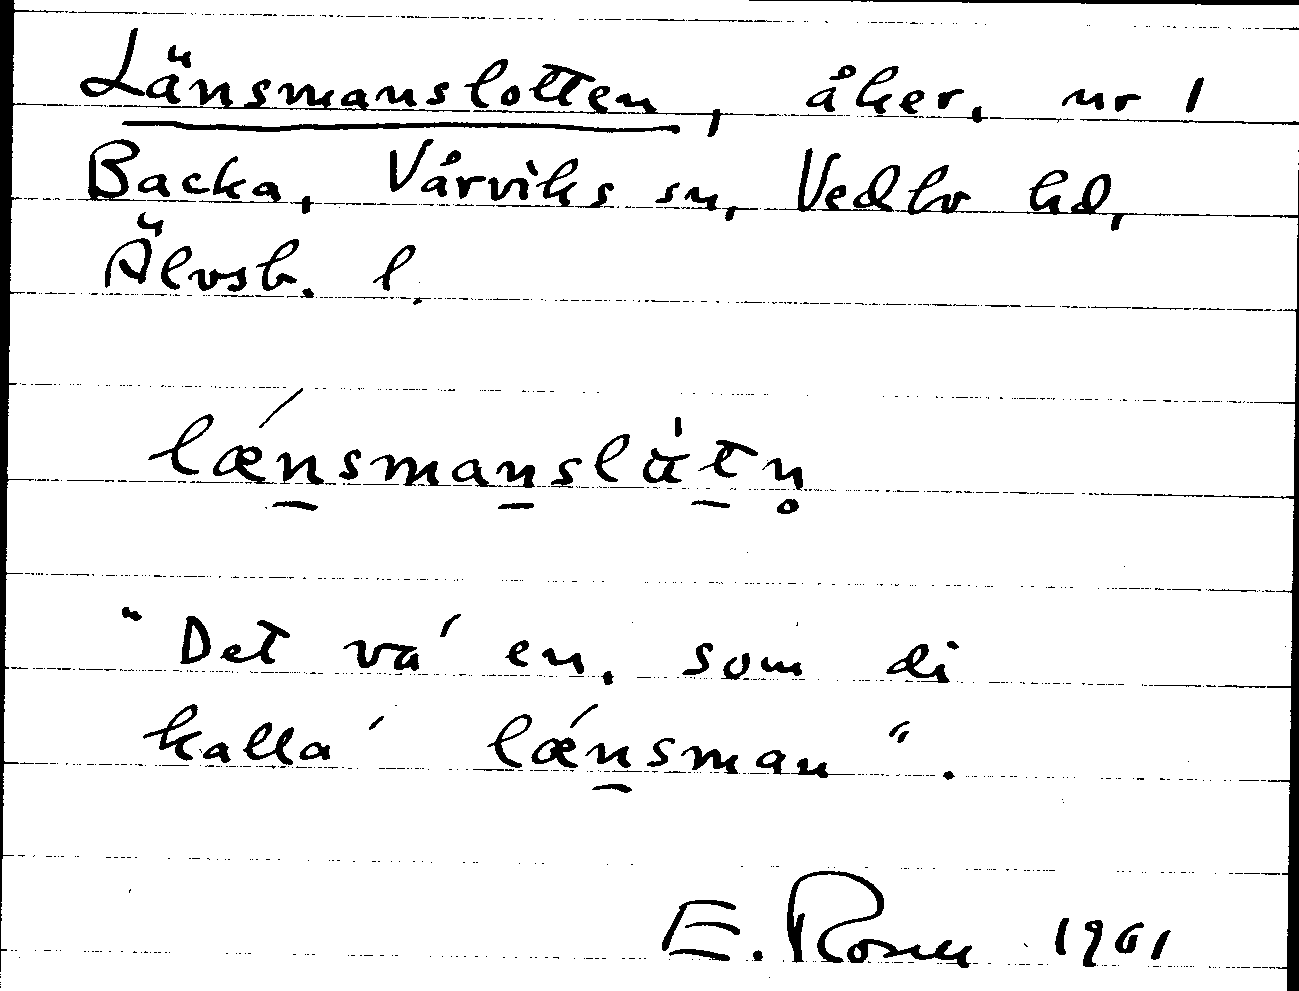 Länsmanslotten, åker, nr 1
Backa, Vårviks sn, Vedbo hd,
Älvsb. l.
lǽn̠sman̠slȧ̈t̠n̥
"Det va' en, som di
kalla' lǽn̠sman".
E. Rosell 1961